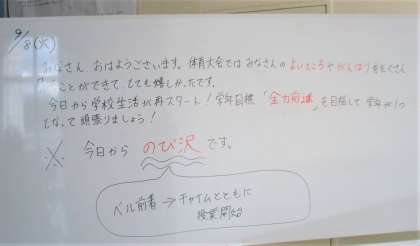 9/8(火)
みなさん、おはようございます。体育大会ではみなさんのよいところやがんばりをたくさん
ことができて、とても嬉しかったです。
今日から学校生活が再スタート！学年目標「全力前進」を目指して学年が1つ
となって頑張りましょう！
※ 今日から のび沢 です。
ベル前着 → チャイムとともに
授業開始